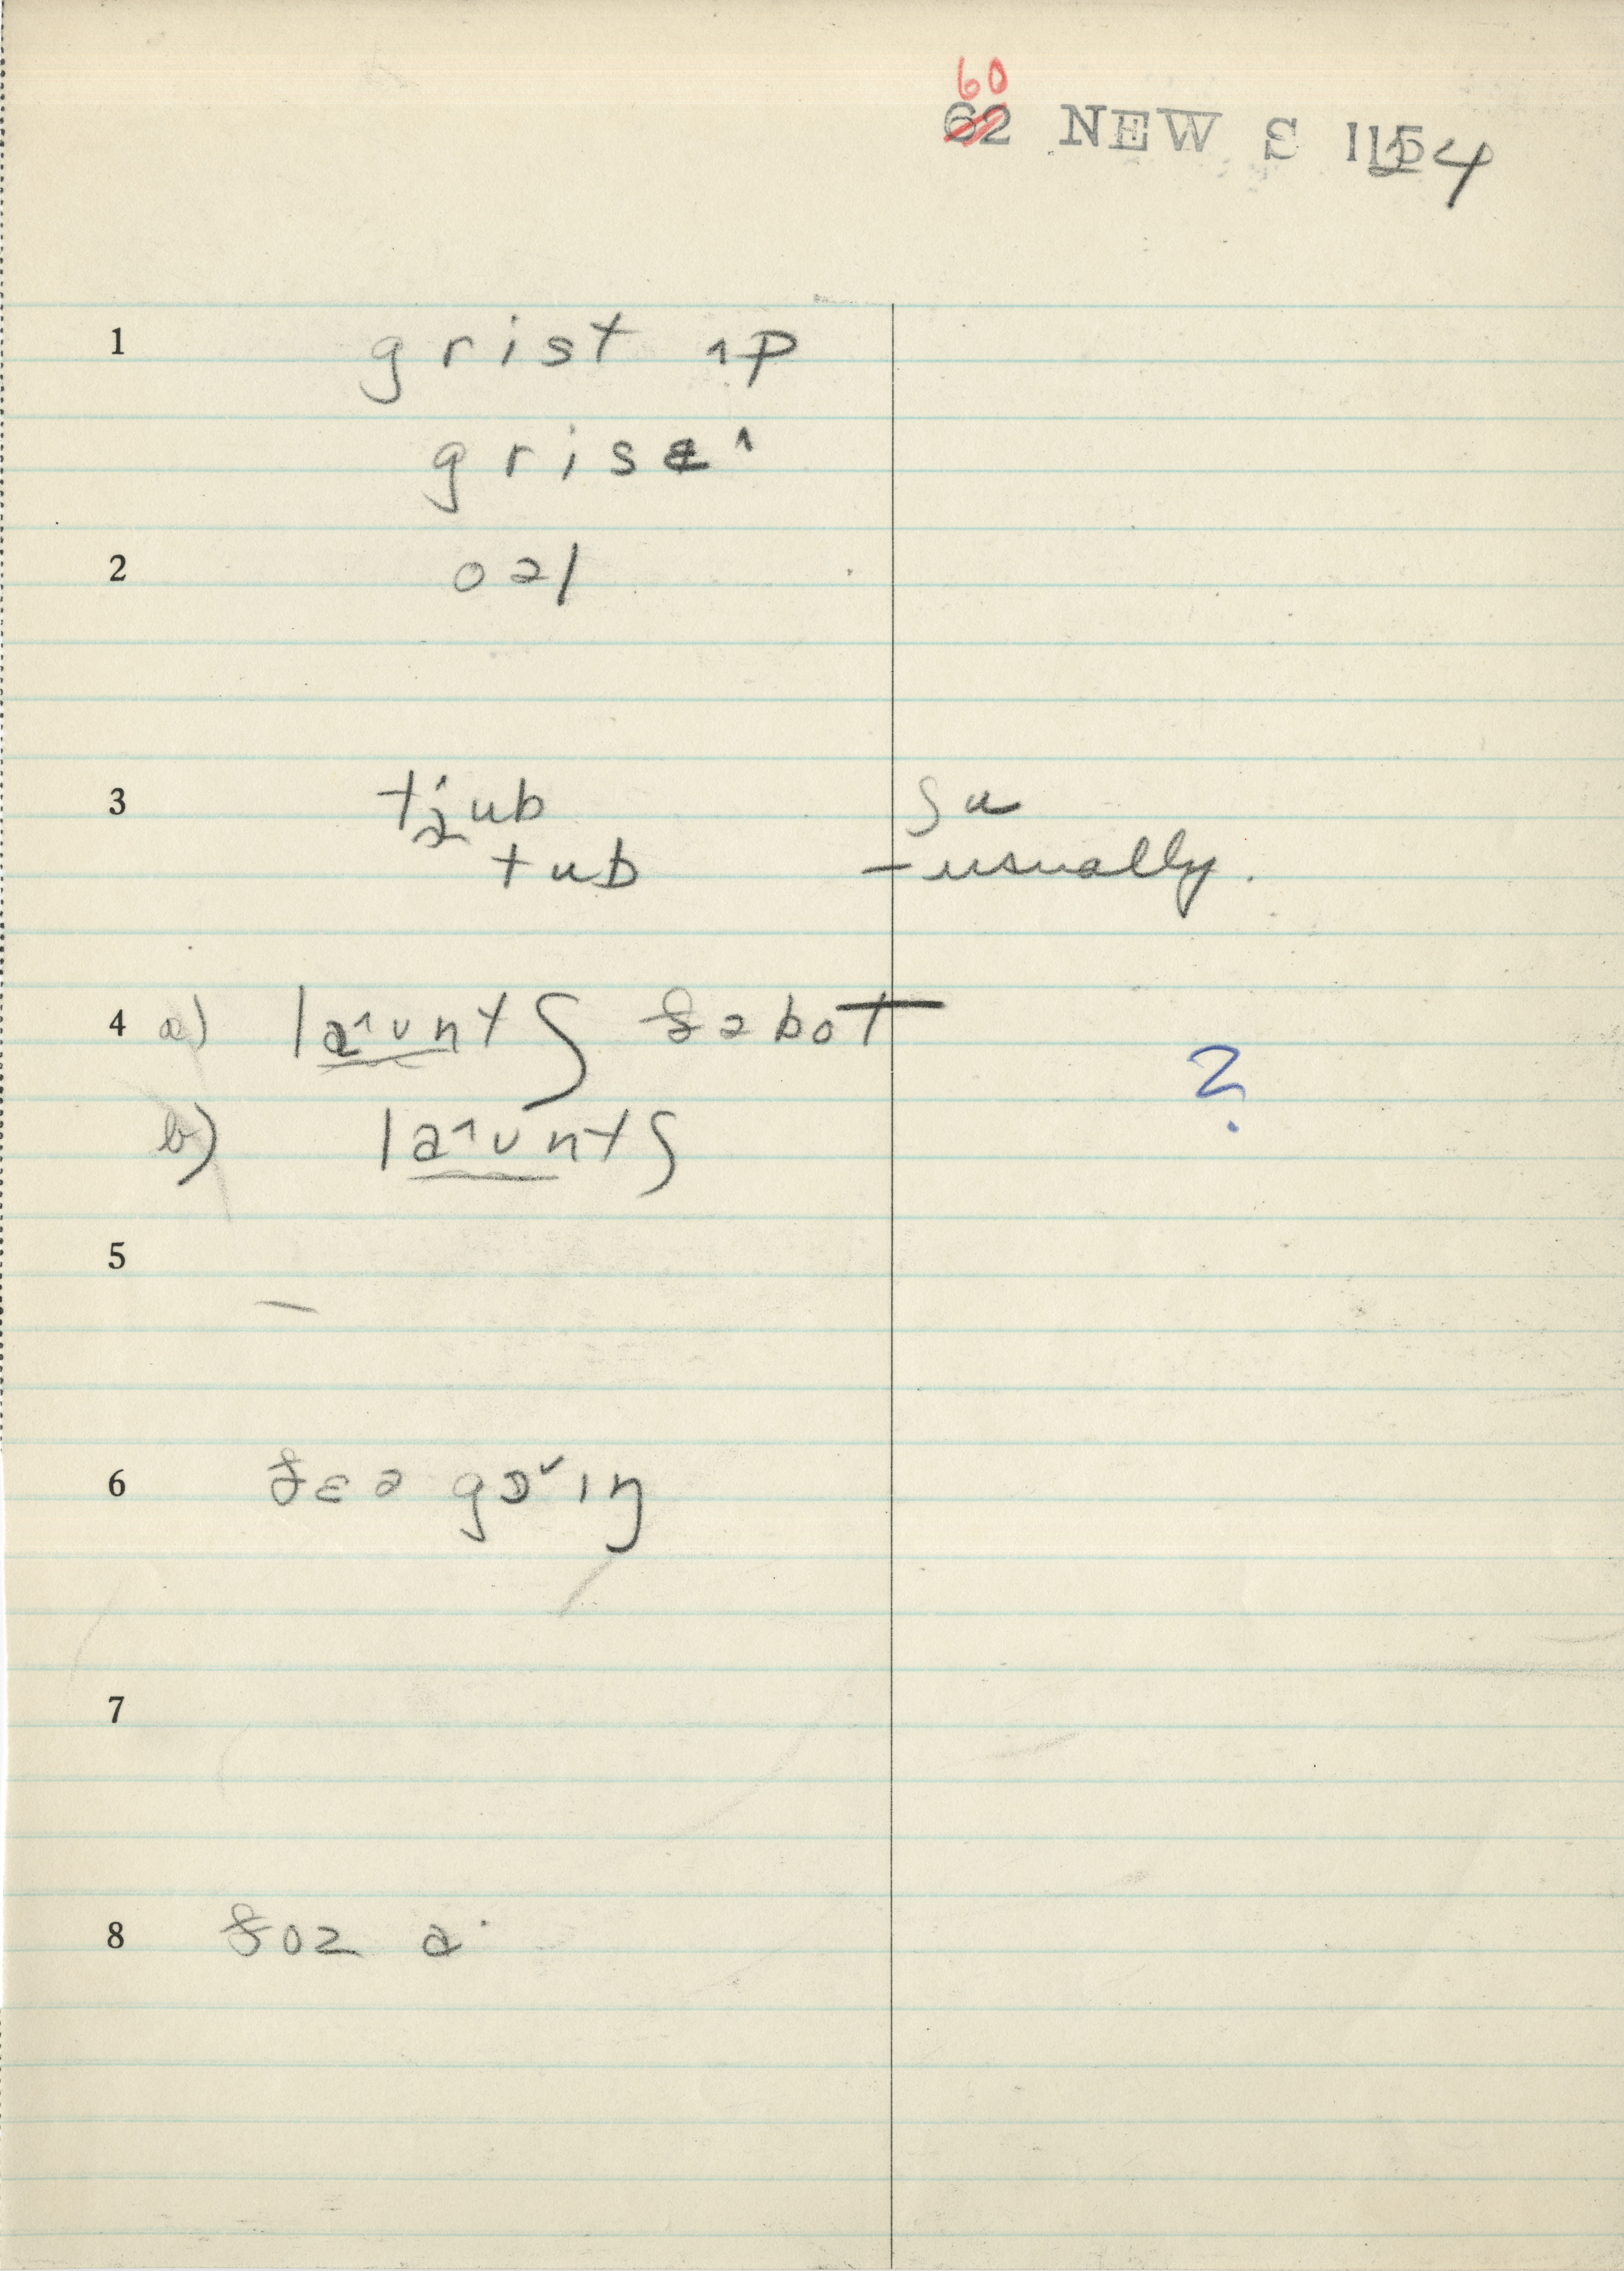 60
62 NEW S 1154
1 grist ʌp
grisɪ˄
2 oəl
3 tjub su
tub - usually.
4 a) la˄ʊntʃ ðə bot ?
b) la˄ʊntʃ
5
6 ðɛə gɔ˅ɪŋ
7
8 ðoz a·